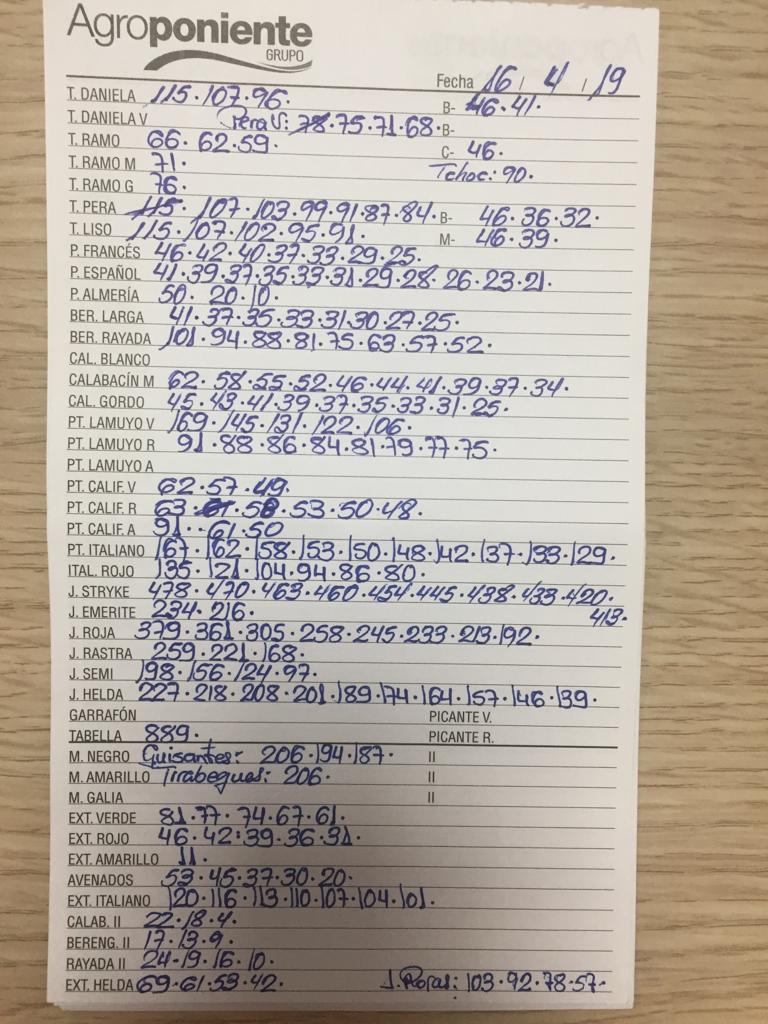 Agroponiente
GRUPO
Fecha 16 / 4 / 19
T. DANIELA 115·107·96· B- 46·41·
T. DANIELA V Pera V: 78·75·71·68· B-
T. RAMO 66·62·59· C- 46·
T. RAMO M 71· Tchoc: 90·
T. RAMO G 76·
T. PERA 115·107·103·99·91·87·84· B- 46·36·32·
T. LISO 115·107·102·95·91· M- 46·39·
P. FRANCÉS 46·42·40·37·33·29·25·
P. ESPAÑOL 41·39·37·35·33·31·29·28·26·23·21·
P. ALMERÍA 50·20·10·
BER. LARGA 41·37·35·33·31·30·27·25·
BER. RAYADA 101·94·88·81·75·63·57·52·
CAL. BLANCO
CALABACÍN M 62·58·55·52·46·44·41·39·37·34·
CAL. GORDO 45·43·41·39·37·35·33·31·25·
PT. LAMUYO V 169·145·131·122·106·
PT. LAMUYO R 91·88·86·84·81·79·77·75·
PT. LAMUYO A
PT. CALIF. V 62·57·49·
PT. CALIF. R 63·61·58·53·50·48·
PT. CALIF. A 91··61·50
PT. ITALIANO 167·162·158·153·150·148·142·137·133·129·
ITAL. ROJO 135·121·104·94·86·80·
J. STRYKE 478·470·463·460·454·445·438·433·420·
413·
J. EMERITE 234·216·
J. ROJA 379·361·305·258·245·233·213·192·
J. RASTRA 259·221·168·
J. SEMI 198·156·124·97·
J. HELDA 227·218·208·201·189·174·164·157·146·139·
GARRAFÓN PICANTE V.
TABELLA 889· PICANTE R.
M. NEGRO Guisantes: 206·194·187· II
M. AMARILLO Tirabeques: 206· II
M. GALIA II
EXT. VERDE 81·77·74·67·61·
EXT. ROJO 46·42·39·36·31·
EXT. AMARILLO 11·
AVENADOS 53·45·37·30·20·
EXT. ITALIANO 120·116·113·110·107·104·101·
CALAB. II 22·18·4·
BERENG. II 17·13·9·
RAYADA II 24·19·16·10·
EXT. HELDA 69·61·53·42· J. Peras: 103·92·78·57·